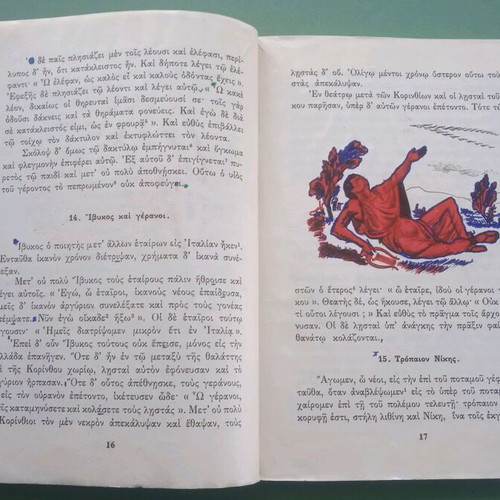 δὲ παῖς πλησιάζει μὲν τοῖς λέουσι καὶ ἐλέφασι, περί-
λυπος δ' ἦν, ὅτι κατάκλειστος ἦν. Καὶ δήποτε λέγει τῷ ἐλέ-
φαντι· «Ὦ ἐλέφαν, ὡς καλὸς εἶ καὶ καλοὺς ὀδόντας ἔχεις».
Ἐφεξῆς δὲ πλησιάζει τῷ λέοντι καὶ λέγει αὐτῷ· «Ὦ κακὲ
λέον, δικαίως οἱ θηρευταὶ ἱμᾶσι δεσμεύουσί σε· τοῖς γὰρ
ὀδοῦσι δάκνεις καὶ τὰ θηράματα φονεύεις. Καὶ ἐγὼ δὲ διὰ
σὲ κατάκλειστός εἰμι, ὡς ἐν φρουρᾷ». Καὶ εὐθὺς ἐπιβάλλει
τῷ τοίχῳ τὸν δάκτυλον καὶ ἐκτυφλώττει τὸν λέοντα.
Σκόλοψ δ' ὅμως τῷ δακτύλῳ ἐμπήγνυται καὶ ὄγκωμα
καὶ φλεγμονὴν ἐπιφέρει αὐτῷ. Ἐξ αὐτοῦ δ' ἐπιγίγνεται πυ-
ρετὸς τῷ παιδὶ καὶ μετ' οὐ πολὺ ἀποθνῄσκει. Οὕτω ὁ υἱὸς
τοῦ γέροντος τὸ πεπρωμένον οὐκ ἀποφεύγει.
14. Ἴβυκος καὶ γέρανοι.
Ἴβυκος ὁ ποιητὴς μετ' ἄλλων ἑταίρων εἰς Ἰταλίαν ἧκεν
Ἐνταῦθα ἱκανὸν χρόνον διέτριψαν, χρήματα δ' ἱκανὰ συνέ-
λεξαν.
Μετ' οὐ πολὺ Ἴβυκος τοὺς ἑταίρους πάλιν ἤθροισε καὶ
λέγει αὐτοῖς. «Ἐγώ, ὦ ἑταῖροι, ἱκανοὺς νέους ἐπαίδευσα,
μεῖς δ' ἱκανὸν ἀργύριον συνελέξατε καὶ πρὸς τοὺς γονέας
ἐπέμψατε. Νῦν ἐγὼ οἴκαδε ἥξω». Οἱ δὲ ἑταῖροι τούτῳ
λεγουσιν· «Ἡμεῖς διατρίψομεν μικρὸν ἔτι ἐν Ἰταλίᾳ».
Ἐπεὶ δ' οὖν Ἴβυκος τούτους οὐκ ἔπεισε, μόνος εἰς τὴν
λλάδα ἐπανῆγεν. Ὅτε δ' ἦν ἐν τῷ μεταξὺ τῆς θαλάττης
ὶ τῆς Κορίνθου χωρίῳ, λῃσταὶ αὐτὸν ἐφόνευσαν καὶ τὸ
γύριον ἥρπασαν. Ὅτε δ' οὗτος ἀπέθνησκε, τοὺς γεράνους,
εἰς τὸν οὐρανὸν ἐπέτοντο, ἱκέτευσεν ὧδε· «Ὦ γέρανοι,
ς καταμηνύσετε καὶ κολάσετε τοὺς λῃστάς». Μετ' οὐ πολὺ
Κορίνθιοι τὸν μὲν νεκρὸν ἀπεκάλυψαν καὶ ἔθαψαν, τοὺς
16
λῃστὰς δ' οὔ. Ὀλίγῳ μέντοι χρόνῳ ὕστερον οὕτω τοὺ
στὰς ἀπεκάλυψαν.
Ἐν θεάτρῳ μετὰ τῶν Κορινθίων καὶ οἱ λῃσταὶ τοῦ
κου παρῆσαν, ὑπὲρ δ' αὐτῶν γέρανοι ἐπέτοντο. Τότε τ
στῶν ὁ ἕτερος λέγει· «ὦ ἑταῖρε, ἰδοὺ οἱ γέρανοι τ
κου». Θεατὴς δέ, ὡς ἤκουσε, λέγει τῷ ἄλλῳ· «Οὐκ
τί οὗτοι λέγουσι;» Καὶ εὐθὺς τὸ πρᾶγμα τοῖς ἄρχοι
νυσαν. Οἱ δὲ λῃσταὶ ὑπ' ἀνάγκης τὴν πρᾶξιν φαί
θανάτῳ κολάζονται.
15. Τρόπαιον Νίκης.
Ἄγωμεν, ὦ νέοι, εἰς τὴν ἐπὶ τοῦ ποταμοῦ γέφυ
ταῦθα, ὅταν ἀναβλέψωμεν εἰς τὸ ὑπὲρ τοῦ ποταμ
χαίρομεν ἐπὶ τῇ τοῦ πολέμου τελευτῇ· τρόπαιον
κορυφῇ ἐστι, στήλη λιθίνη καὶ Νίκη, ἵνα τοῖς ἐκγ
17